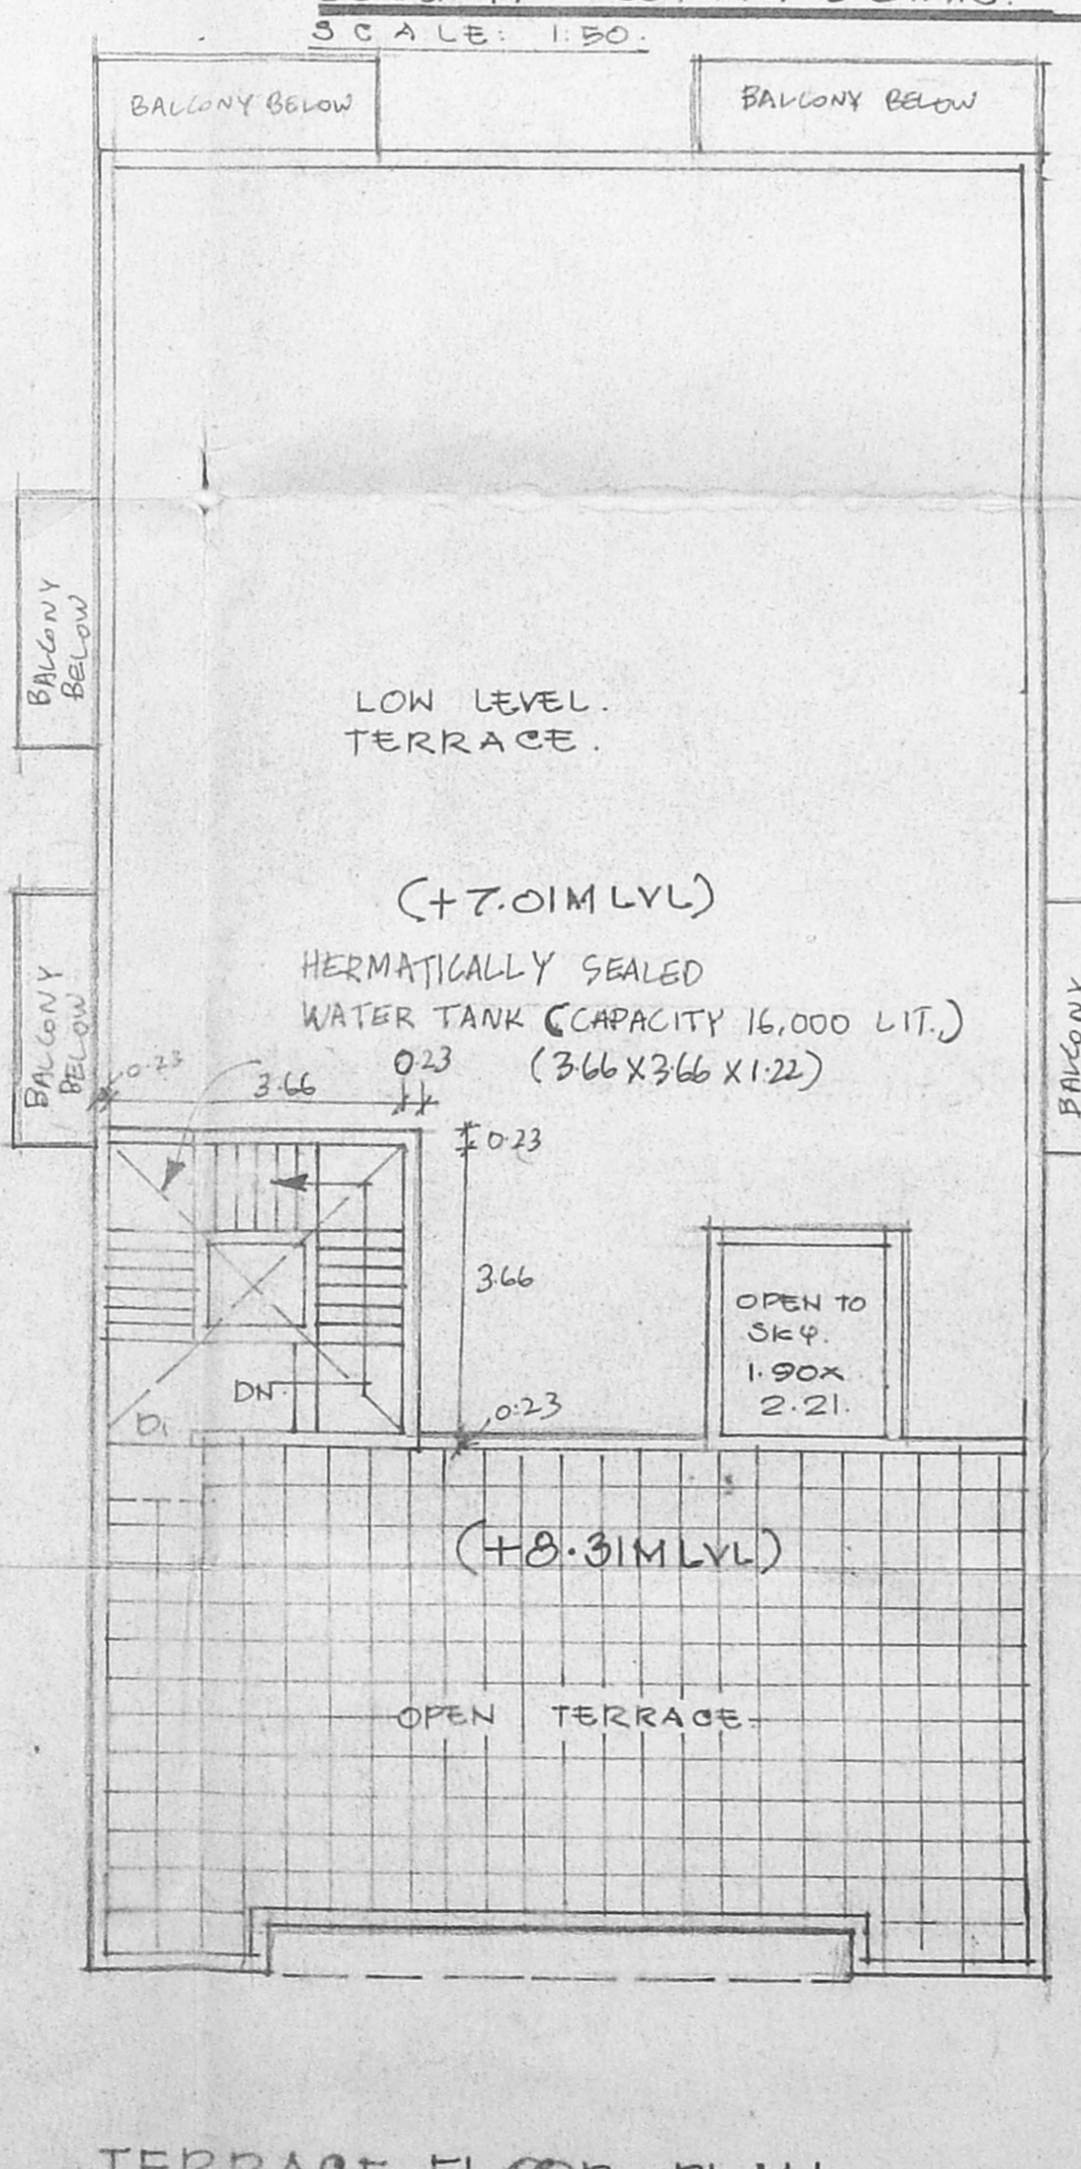 SCALE: 1:50.
BALCONY BELOW
BALCONY BELOW
BALCONY
BELOW
LOW LEVEL.
TERRACE.
(+7.01M LVL)
HERMATICALLY SEALED
WATER TANK (CAPACITY 16,000 LIT.)
(3.66 X 3.66 X 1.22)
BALCONY
BELOW
BALCONY
0.23
3.66
0.23
0.23
3.66
OPEN TO
SKY.
1.90X
2.21.
DN.
D1
0.23
(+8.31M LVL)
OPEN TERRACE.
TERRACE FLOOR PLAN